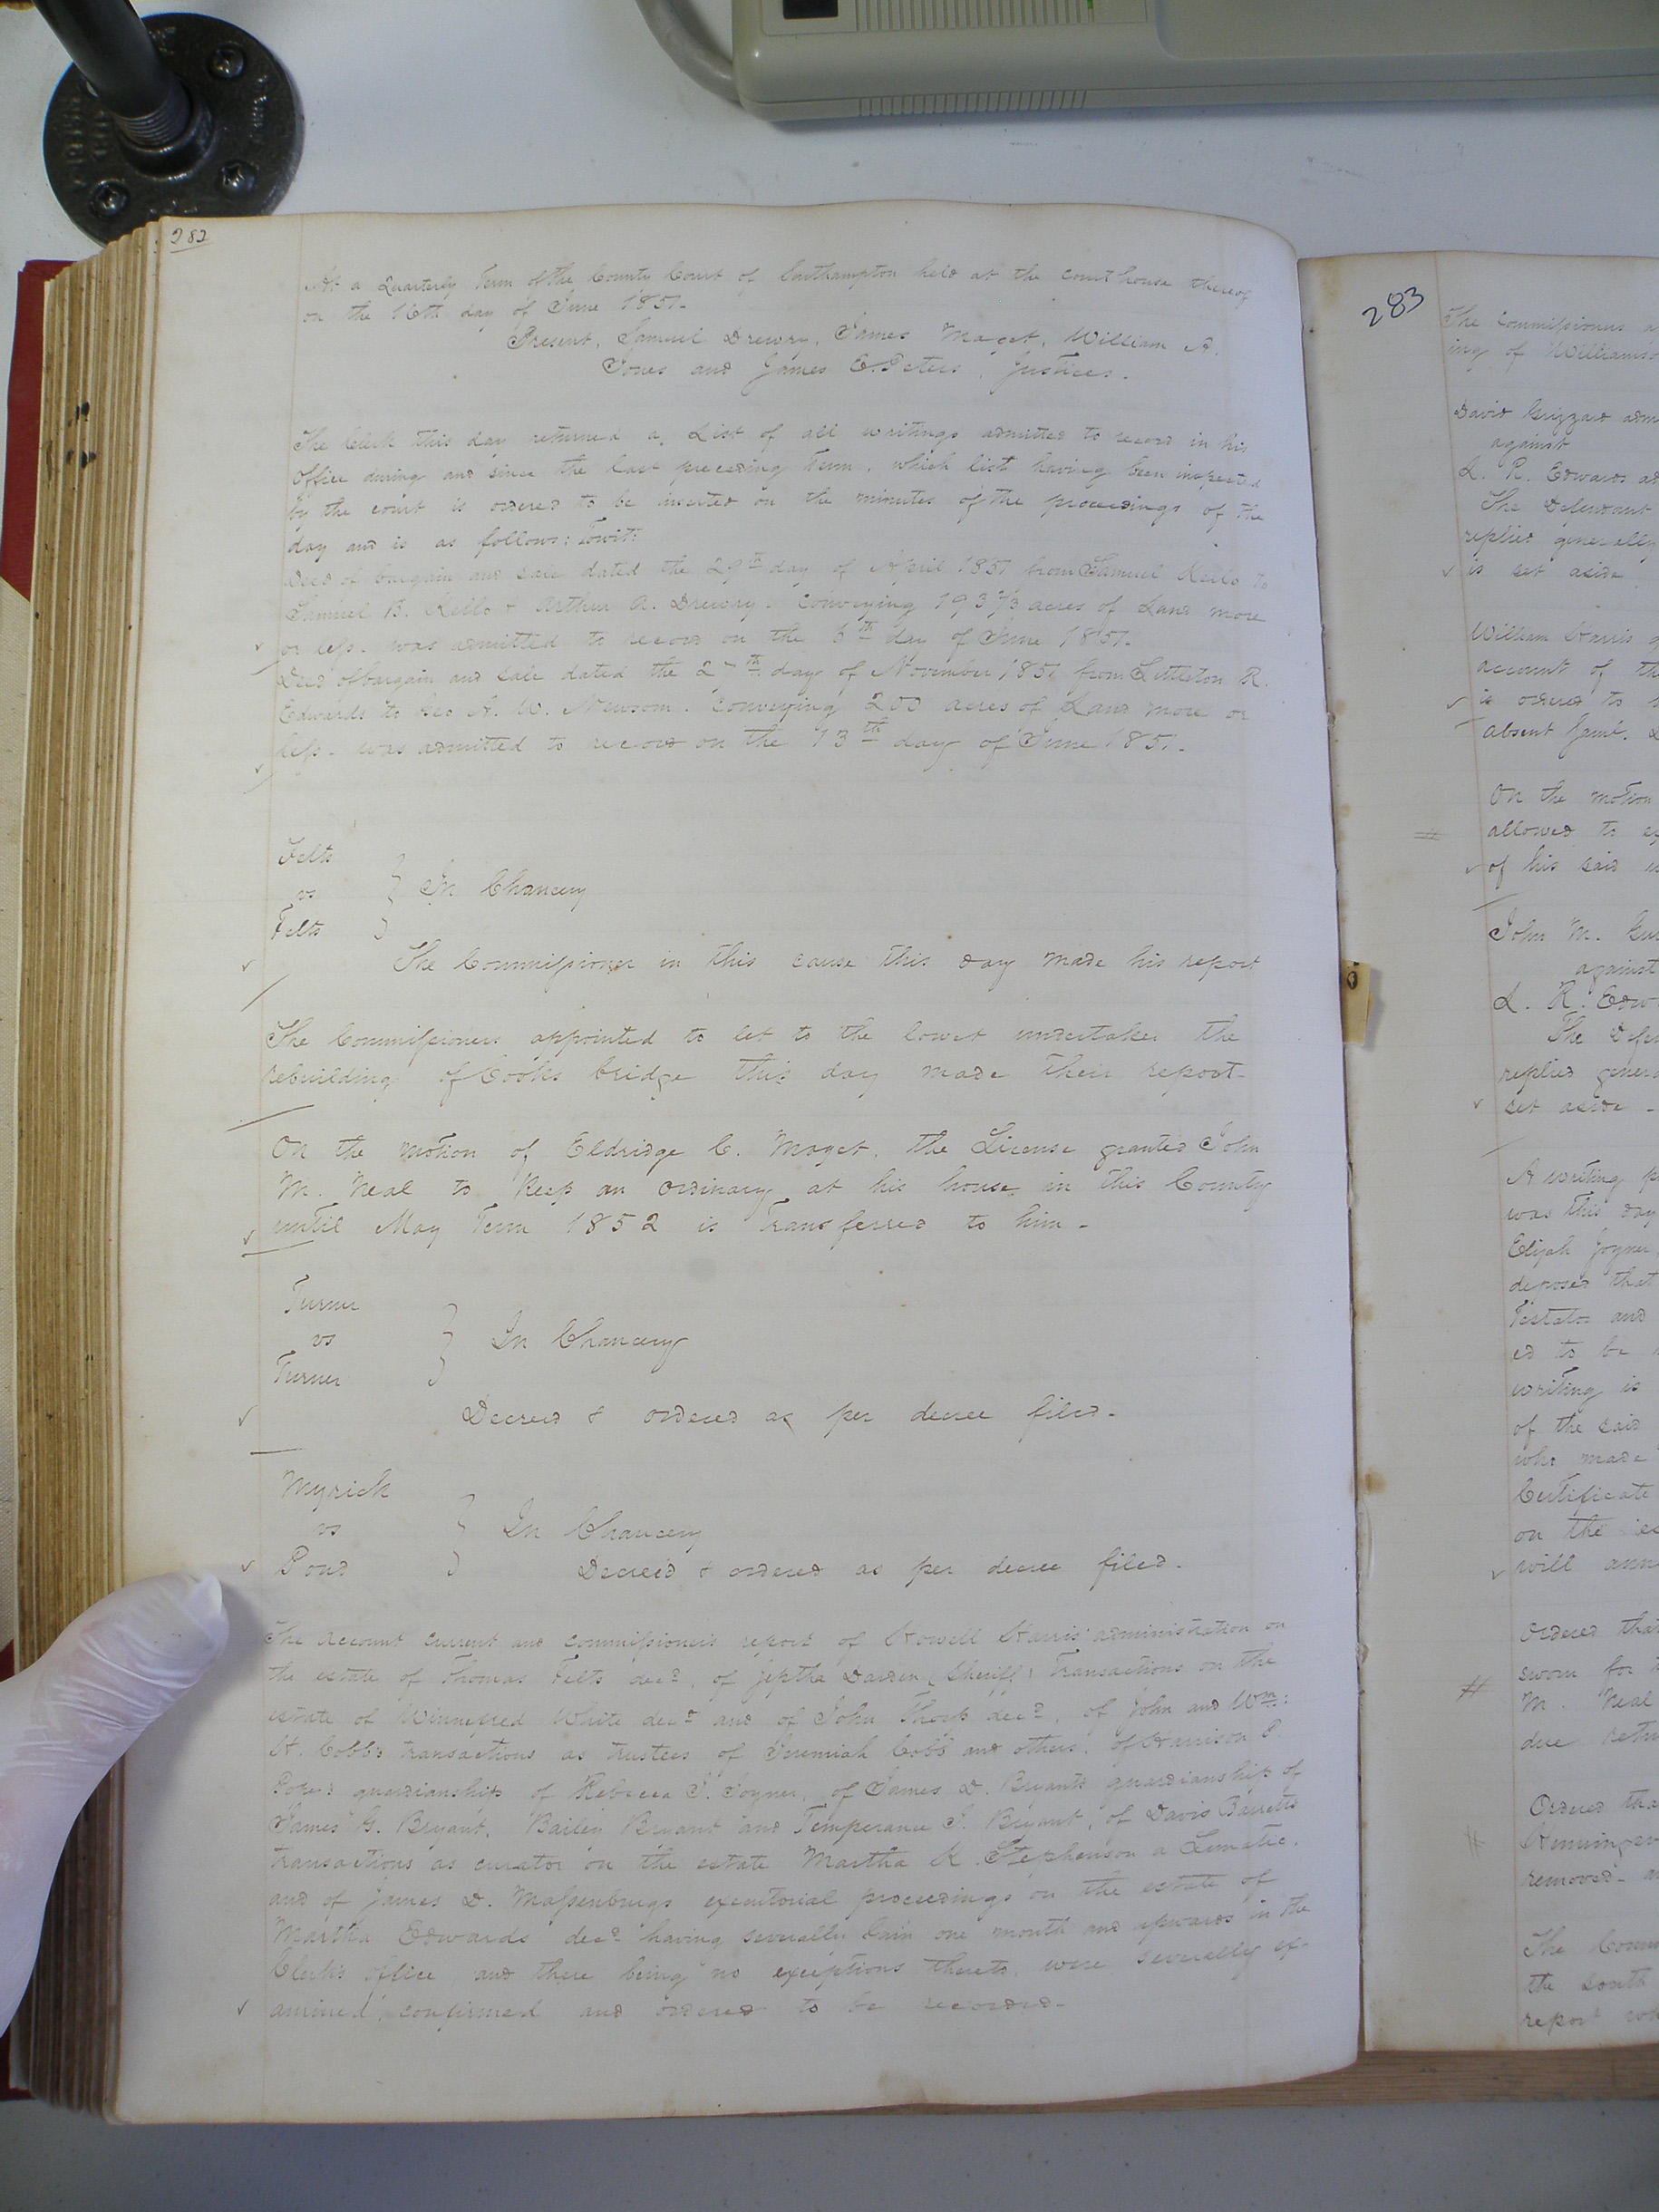 282
At a Quarterly Term of the County Court of Southampton held at the court house thereof
on the 16th day of June 1851.
Present, Samuel Drewry, James Maget, William A.
Jones and James E. Peters, Justices.
The Clerk this day returned a List of all writings admitted to record in his
office during and since the last preceding Term, which list having been inspected
by the court is ordered to be inserted on the minutes of the proceedings of the
day and is as follows: Towit:
Deed of bargain and sale dated the 29th day of April 1851 from Samuel Kello to
Samuel B. Kello & Arthur A. Drewry conveying 193 2/3 acres of Land more
or less. was admitted to record on the 5th day of June 1851.
Deed of bargain and sale dated the day of November 1851 from Littleton R.
Edwards to Geo A. W. Newsom. conveying 200 acres of Land more or
less. was admitted to record on the 13th day of June 1851.
Felts
vs } In Chancery
Felts
The Commissioner in this cause this day made his report
The Commissioners appointed to let to the lowest undertaker the
rebuilding of Cooks bridge this day made their report.
On the motion of Eldridge C. Maget, the License granted John
M. Neal to Keep an ordinary at his house in this County
until May Term 1852 is Transferred to him.
Turner
vs } In Chancery
Turner
Decreed & ordered as per decree filed.
Myrick
vs } In Chancery
Pond Decreed & ordered as per decree filed.
The Account current and commissioners report of Howell Harris' administration on
the estate of Thomas Felts decd, of Jeptha Darden (Sheriff) Transactions on the
estate of Winnefred White decd and of John Thorp decd, of John and Wm:
H. Cobbs transactions as trustees of Jeremiah Cobb and others, of Harrison P.
Popes guardianship of Rebecca J. Joyner, of James D. Bryants guardianship of
James G. Bryant, Bailey Bryant and Temperance J. Bryant, of Davis Barretts
transactions as curator on the estate Martha K. Stephenson a Lunatic,
and of James D. Massenburgs executorial proceedings on the estate of
Martha Edwards decd having severally lain one month and upwards in the
Clerks office and there being no exceptions thereto, were severally ex-
amined, confirmed and ordered to be recorded.
283
The Commissioners
ing of
David Grizzard
against
L. R. Edwards
The Defendant
replied generally
is set aside
William Harris
account of
is ordered to
absent Jaml.
On the motion
allowed to
of his said
John M.
against
L. R.
The
replied
set aside
A writing
was this day
Elijah Joyner
deposed that
Testator and
ed to be
writing is
of the said
who made
Certificate
on the
will
Ordered that
sworn for
M. Neal
due
Ordered
removed
The
the south
report